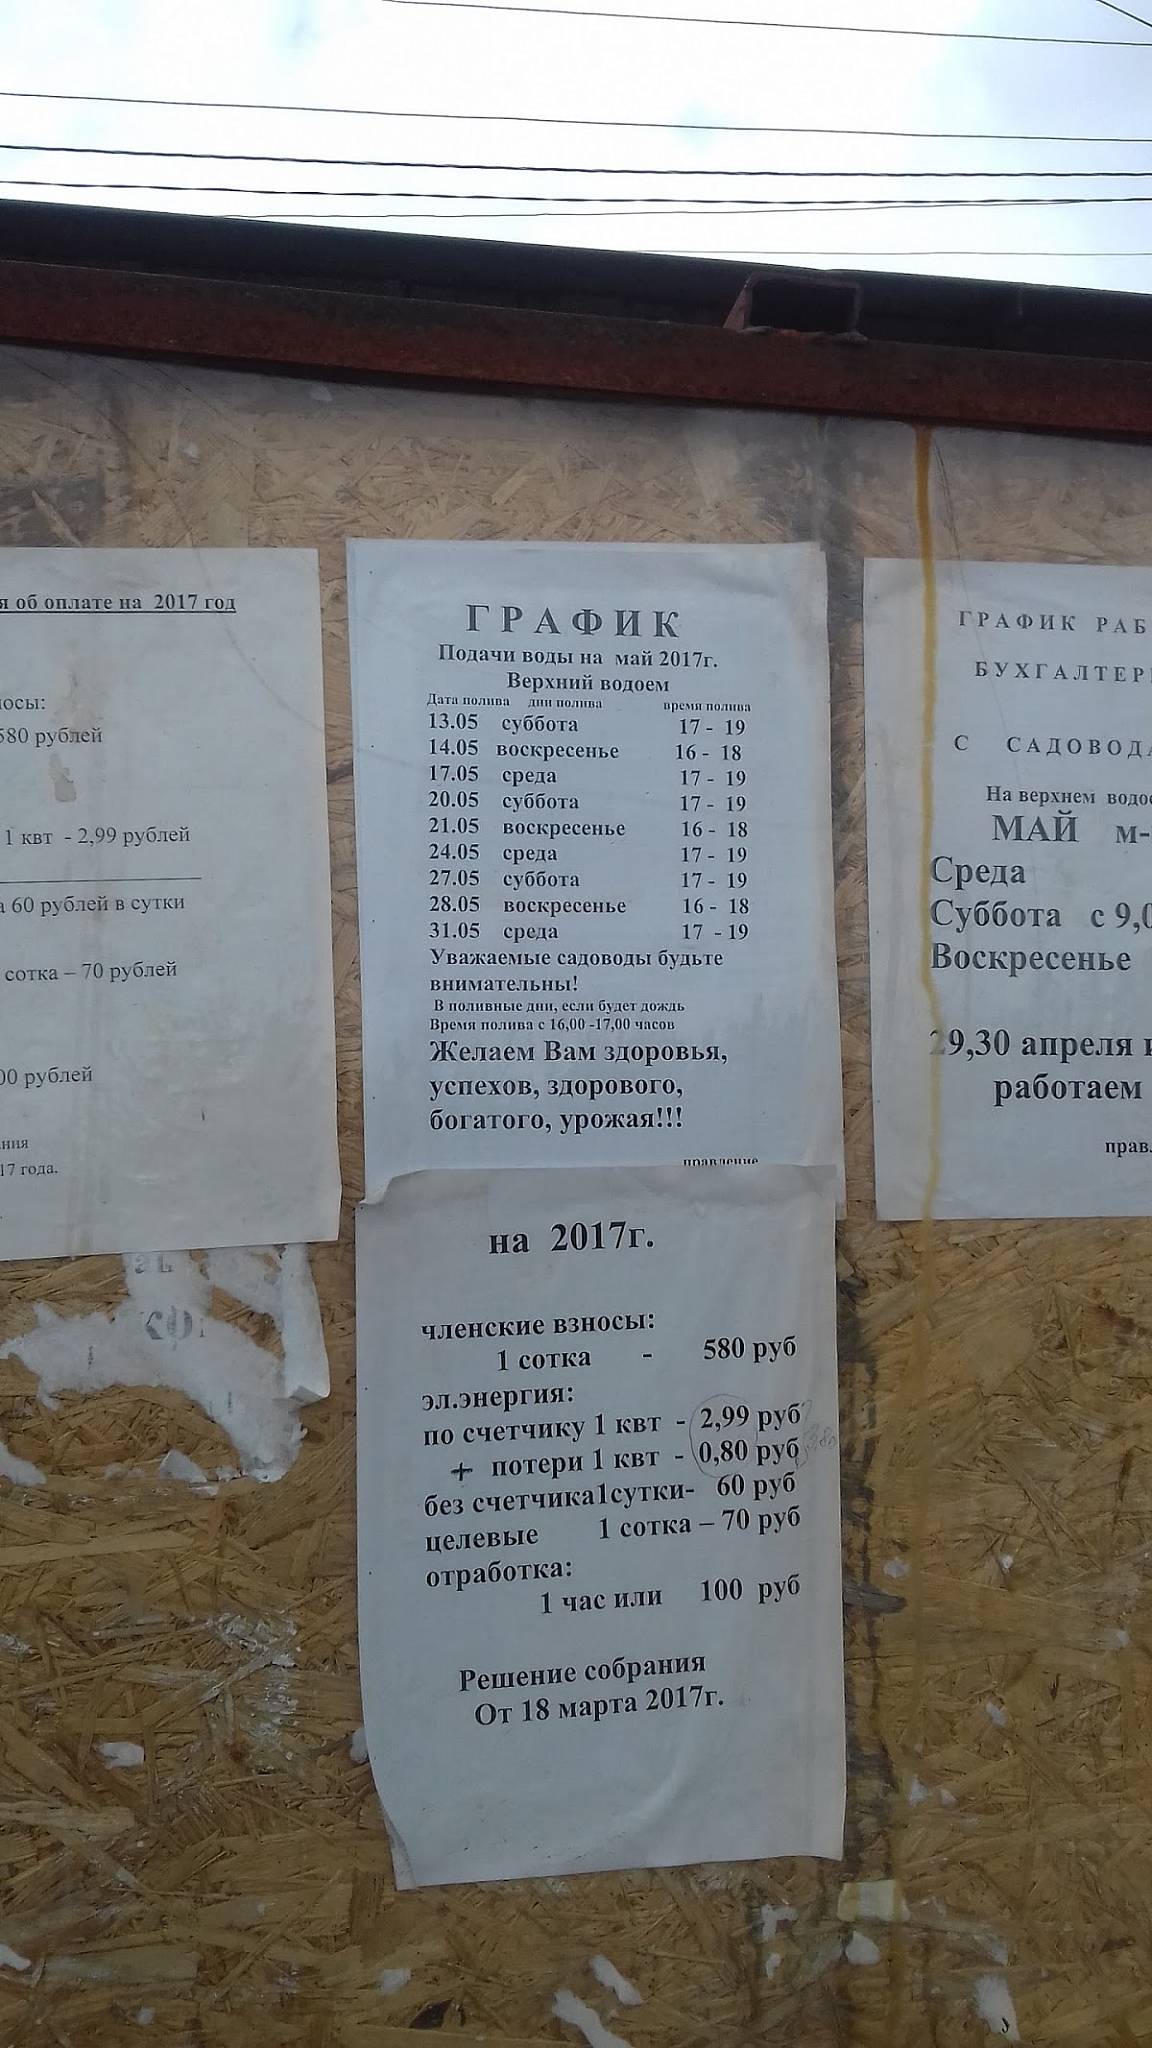 об оплате на 2017 год
580 рублей
1 квт - 2,99 рублей
60 рублей в сутки
сотка – 70 рублей
рублей
года.
ГРАФИК
Подачи воды на май 2017г.
Верхний водоем
Дата полива дни полива время полива
13.05 суббота 17 - 19
14.05 воскресенье 16 - 18
17.05 среда 17 - 19
20.05 суббота 17 - 19
21.05 воскресенье 16 - 18
24.05 среда 17 - 19
27.05 суббота 17 - 19
28.05 воскресенье 16 - 18
31.05 среда 17 - 19
Уважаемые садоводы будьте
внимательны!
В поливные дни, если будет дождь
Время полива с 16,00 -17,00 часов
Желаем Вам здоровья,
успехов, здорового,
богатого, урожая!!!
правление
на 2017г.
членские взносы:
1 сотка - 580 руб
эл.энергия:
по счетчику 1 квт - 2,99 руб
+ потери 1 квт - 0,80 руб
без счетчика1сутки- 60 руб
целевые 1 сотка – 70 руб
отработка:
1 час или 100 руб
Решение собрания
От 18 марта 2017г.
ГРАФИК РАБ
БУХГАЛТЕР
С САДОВОДА
На верхнем водо
МАЙ м-
Среда
Суббота с 9,0
Воскресенье
29,30 апреля и
работаем